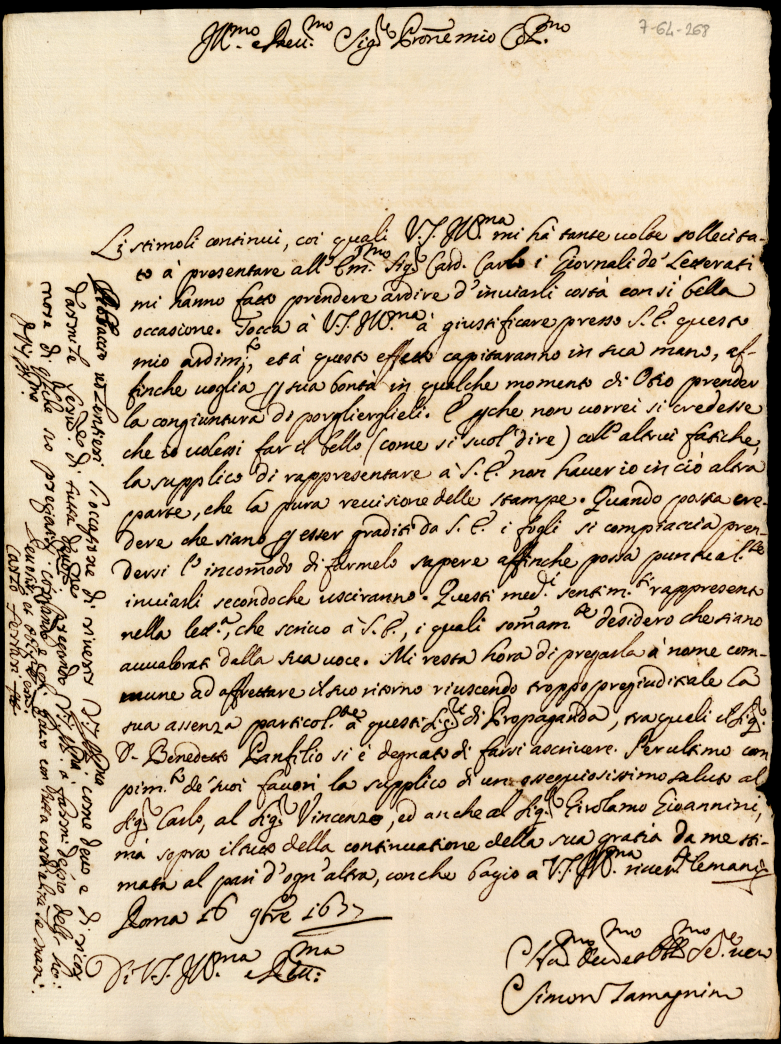 7-64-268
Ill.mo e Reu.mo Sig.r Prone mio Col.mo
Li stimoli continui, coi quali V.S. Ill.ma mi hà tante uolte sollecita-
to à presentare all'Em.mo Sig.r Card. Carlo i Giornali de' Letterati
mi hanno fatto prendere ardire d'inuiarli costà con sì bella
occasione. Tocca à V.S. Ill.ma à giustificare presso S.E. questo
mio ardim.to, et à questo effetto capitaranno in sua mano, af-
finche uoglia p sua bontà in qualche momento di Otio prender
la congiuntura di porglierglieli. E pche non uorrei si credesse
che io uolessi far il bello (come si suol dire) coll'altrui fatiche,
la supplico di rappresentare à S.E. non hauer io in ciò altra
parte, che la pura reuisione delle stampe. Quando possa cre-
dere che siano p esser graditi da S.E. i fogli si compiaccia pren-
dersi l'incommodo di farmelo sapere affinche possa puntualm.te
inuiarli secondoche usciranno. Questi med.i sentim.ti rappresento
nella lett.a, che scriuo à S.E., i quali somam.te desidero che siano
auualorati dalla sua uoce. Mi resta hora di pregarla à nome com-
mune ad affrettare il suo ritorno riuscendo troppo pregiuditiale la
sua assenza particol.te à questi Sig.ri di Propaganda, tra quali il Sig.r
D. Benedetto Panfilio si è degnato di farsi ascriuere. Per ultimo com
pim.to de' suoi fauori la supplico di un ossequiosissimo saluto al
Sig.r Carlo, al Sig.r Vincenzo, ed anche al Sig.r Girolamo Gioannini,
mà sopra il tutto della continuatione della sua gratia da me sti-
mata al pari d'ogn'altra, con che bagio a V.S. Ill.ma riuer.te le mani
Roma 16 9bre 1677
Di V.S. Ill.ma e Reu.ma
Deuot.mo et Obl.mo Se.re uero
Simone Tamagnini
Abbraccio uolentieri l'occasione di riuerir V.S. Ill.ma come deuo e di ricor
darmele Ser.re di tutta deuot.ne pregando V.S. Ill.ma à farmi degno dell'ho-
nore di
Carlo Ferrari